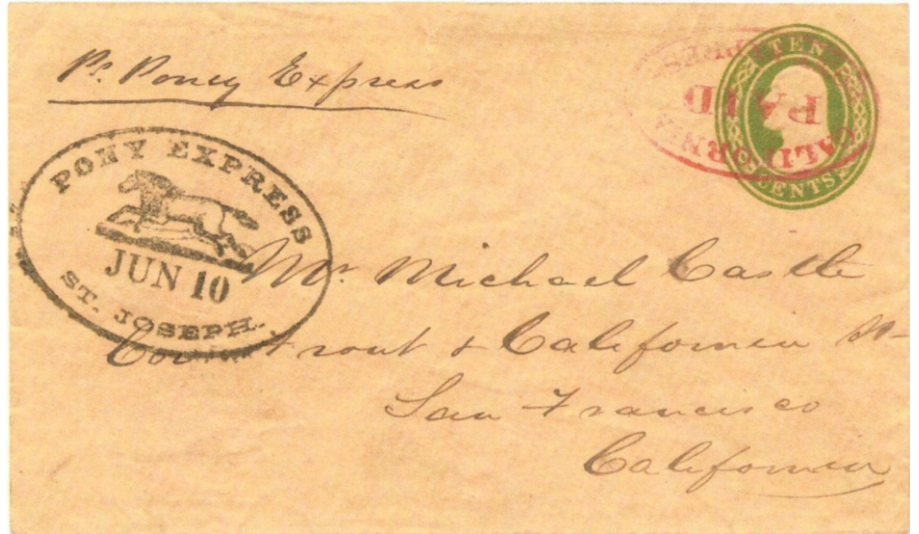 Pr. Poney Express
TEN
CENTS
CALIFORNIA
PAID
PONY EXPRESS
JUN 10
ST. JOSEPH.
Mr. Michael Castle
Cor. Front & California St-
San Francisco
California